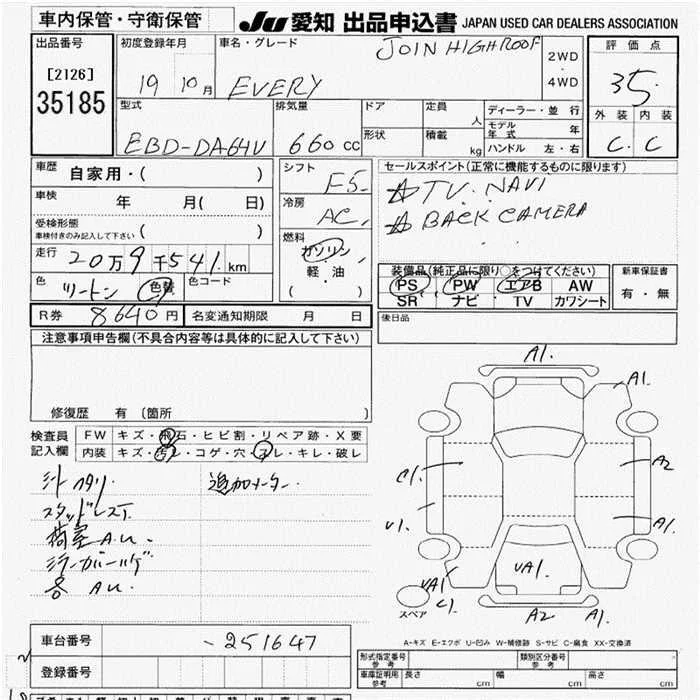 車内保管・守衛保管
JU 愛知 出品申込書 JAPAN USED CAR DEALERS ASSOCIATION
出品番号
[2126]
35185
初度登録年月
19 10月
車名・グレード
EVERY
JOIN HIGHROOF
2WD
・
4WD
評価点
3.5
外装 内装
C C
型式
EBD-DA64V
排気量
660 cc
ドア
形状
定員 人
積載 kg
ディーラー・並行
モデル年式 年
ハンドル 左・右
車歴
自家用・( )
車検
年 月( 日)
受検形態
車検付きのみ記入して下さい ( )
走行
20万9千541km
色
ツートン
色替
色コード
シフト
F5
冷房
AC
燃料
ガソリン
・
軽・油
( )
セールスポイント(正常に機能するものに限ります)
☆TV. NAVI
☆BACK CAMERA
装備品(純正品に限り○をつけてください)
PS PW エアB AW
SR ナビ TV カワシート
新車保証書
有・無
R券 8640円
名変通知期限 月 日
後日品
注意事項申告欄(不具合内容等は具体的に記入して下さい)
修復歴 有〔箇所 〕
検査員
記入欄
FW キズ・飛石・ヒビ割・リペア跡・X要
内装 キズ・汚レ・コゲ・穴・スレ・キレ・破レ
シートヘタリ
追加メーター
スタッドレスT
荷室 A.U.
ミラーカバーハゲ
各 A.U.
A1.
A1.
C1.
A2
V1.
A1.
UA1
C1.
UA1.
A2
A1.
スペア
A-キズ E-エクボ U-凹み W-補修跡 S-サビ C-腐食 XX-交換済
車台番号
-251647
登録番号
形式指定番号
参考
類別区分番号
参考
車庫証明用
参考
長さ cm
幅 cm
高さ cm